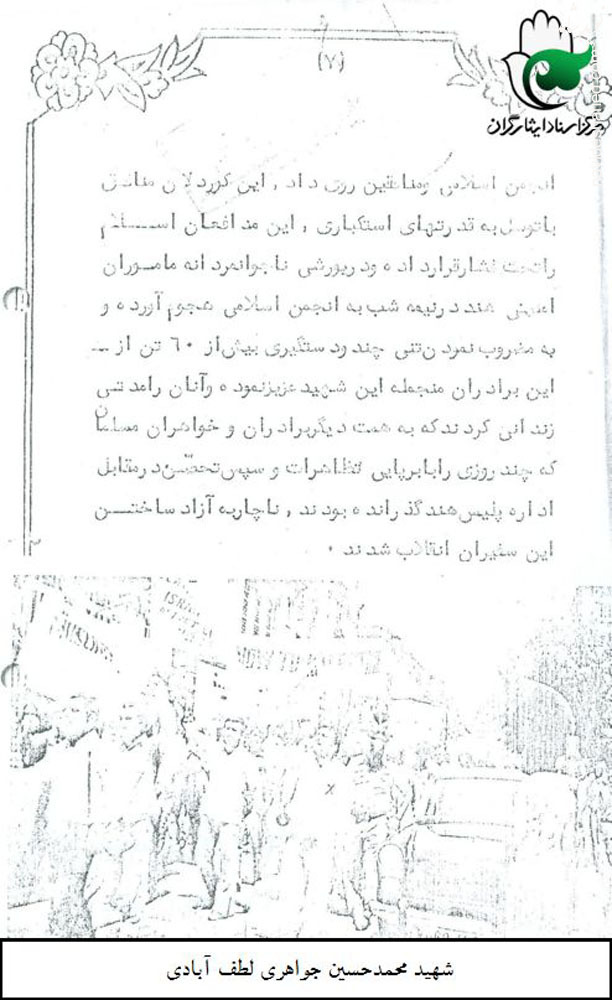 (۷)
مرکز اسناد ایثارگران
انجمن اسلامی ومنافقین روی داد , این کوردلان منافق
باتوسل به قدرتهای استکباری , این مدافعان اسـلام
راتحت فشارقرارداده ودریورشی ناجوانمردانه ماموران
امنیتی هند درنیمه شب به انجمن اسلامی هجوم آورده و
به مضروب نمودن تنی چند ودستگیری بیش از ۶۰ تن از ـ
این برادران منجمله این شهید عزیزنموده وآنان رامدتی
زندانی کردند که به همت دیگربرادران و خواهران مسلمان
که چند روزی رابابرپایی تظاهرات و سپس تحصّن درمقابل
اداره پلیس هند گذرانده بودند , ناچاربه آزاد ساختـن
این سفیران انقلاب شدند .
ISRAEL
HOW TO
شهید محمدحسین جواهری لطف آبادی